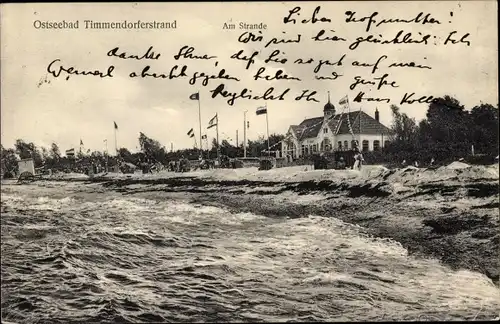 Ostseebad Timmendorferstrand
Am Strande
Lieber Hofmutter!
Wir sind hier glücklich. Ich
danke Ihnen, daß Sie so gut auf mein
Gemach acht gegeben haben und grüße
herzlichst Ihr Hans Koll